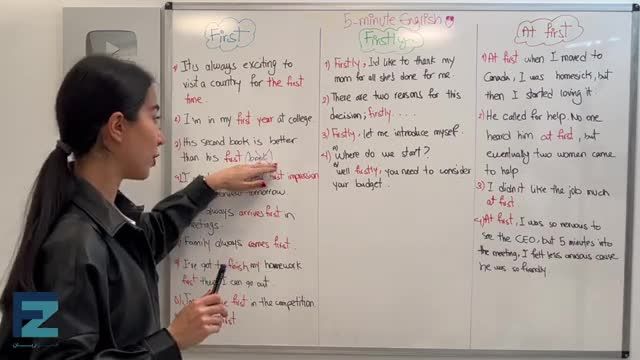 5-minute English
First
1) It's always exciting to
visit a country for the first
time.
2) I'm in my first year at college.
3) His second book is better
than his first (book)
4) I
first impression
tomorrow
always arrives first in
meetings.
Family always comes first.
I've got to finish my homework
first then I can go out.
8)
first in the competition
first
Firstly
1) Firstly, I'd like to thank my
mom for all she's done for me.
2) There are two reasons for this
decision; firstly.....
3) Firstly, let me introduce myself.
4) Where do we start?
well firstly, you need to consider
your budget.
At first
1) At first when I moved to
Canada, I was homesick, but
then I started loving it.
2) He called for help. No one
heard him at first, but
eventually two women came
to help
3) I didn't like the job much
at first.
4) At first, I was so nervous to
see the CEO, but 5 minutes into
the meeting, I felt less anxious cause
he was so friendly
EZ